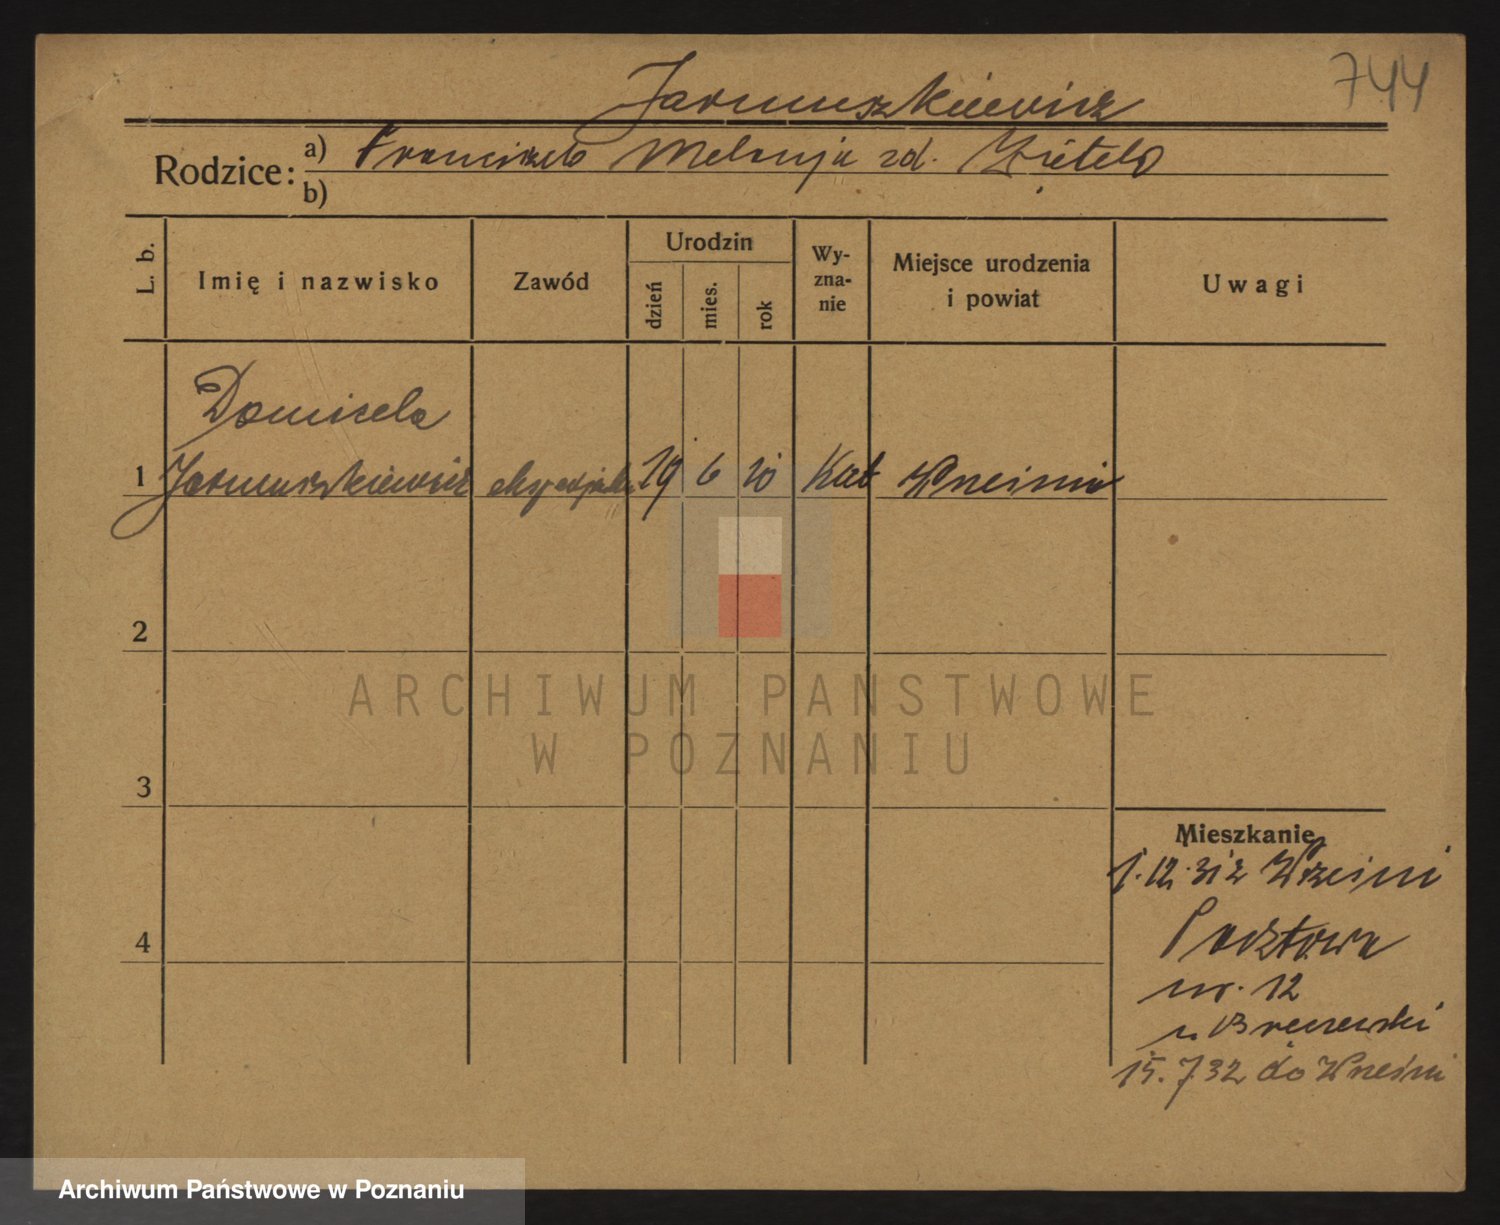 744
Jarmuszkiewicz
Rodzice:
a) Franciszek Melanja zd.
b)
L. b.
Imię i nazwisko
Zawód
Urodzin
dzień
mies.
rok
Wy-
zna-
nie
Miejsce urodzenia
i powiat
Uwagi
Domicela
1 Jarmuszkiewicz ekspedjentka 19 6 10 Kat Września
2
3
4
Mieszkanie
1.12.31 z Wrześni
Pocztowa
nr. 12
15.7.32 do Wrześni
ARCHIWUM PAŃSTWOWE
W POZNANIU
Archiwum Państwowe w Poznaniu